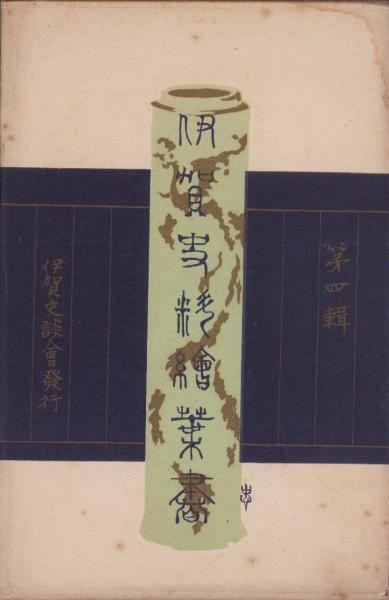 第四輯
伊賀史料絵繪葉書
伊賀史談會發行